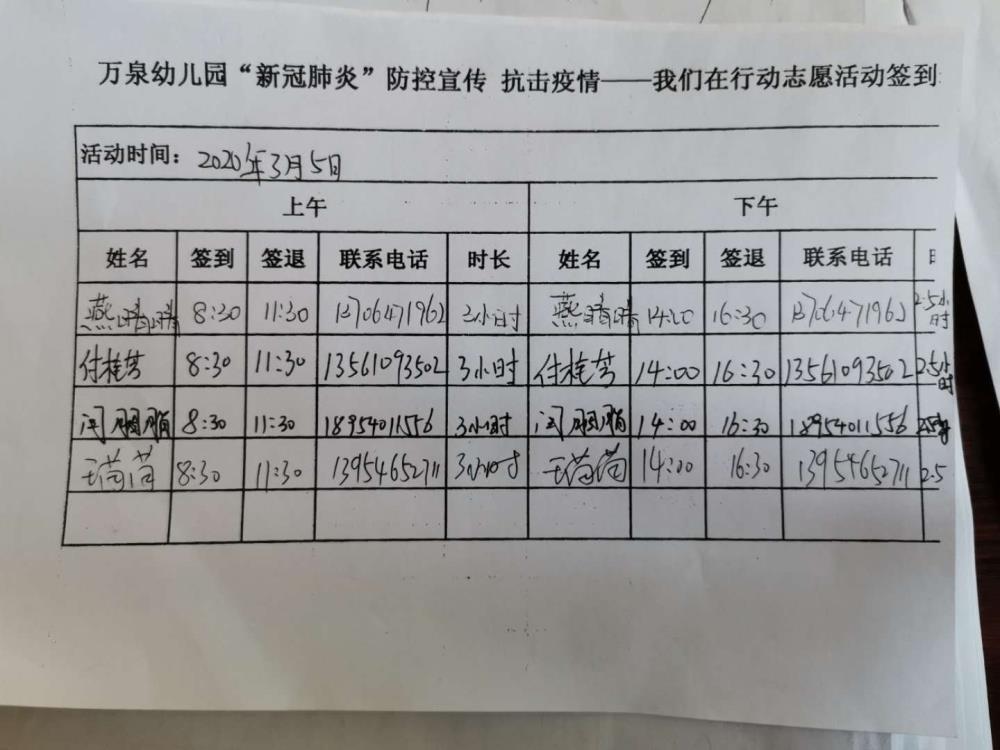 万泉幼儿园“新冠肺炎”防控宣传 抗击疫情——我们在行动志愿活动签到
活动时间：2020年3月5日
上午 下午
姓名 签到 签退 联系电话 时长 姓名 签到 签退 联系电话
燕晴晴 8:30 11:30 13706471962 3小时 燕晴晴 14:00 16:30 13706471962 2.5小时
付桂芳 8:30 11:30 13561093502 3小时 付桂芳 14:00 16:30 13561093502 2.5小时
闫 8:30 11:30 18954011556 3小时 闫 14:00 16:30 18954011556
王蒳蒳 8:30 11:30 13954652711 3小时 14:00 16:30 13954652711 2.5